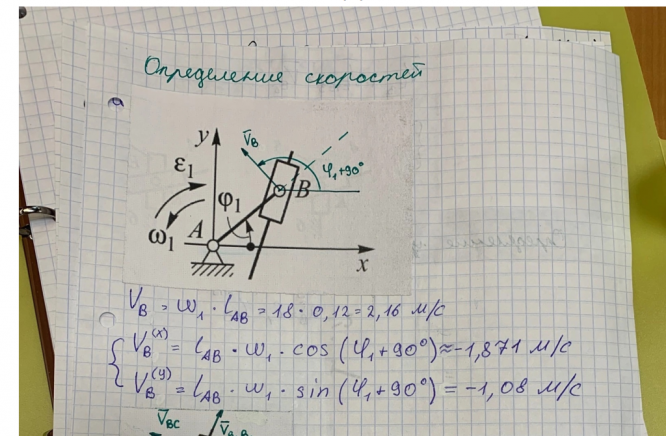 Определение скоростей
y
V̄_B
φ₁+90°
ε₁
B
φ₁
A
ω₁
x
V_B = ω₁ · l_AB = 18 · 0,12 = 2,16 м/с
V_B^(x) = l_AB · ω₁ · cos (φ₁+90°) ≈ -1,871 м/с
V_B^(y) = l_AB · ω₁ · sin (φ₁+90°) = -1,08 м/с
V̄_BC